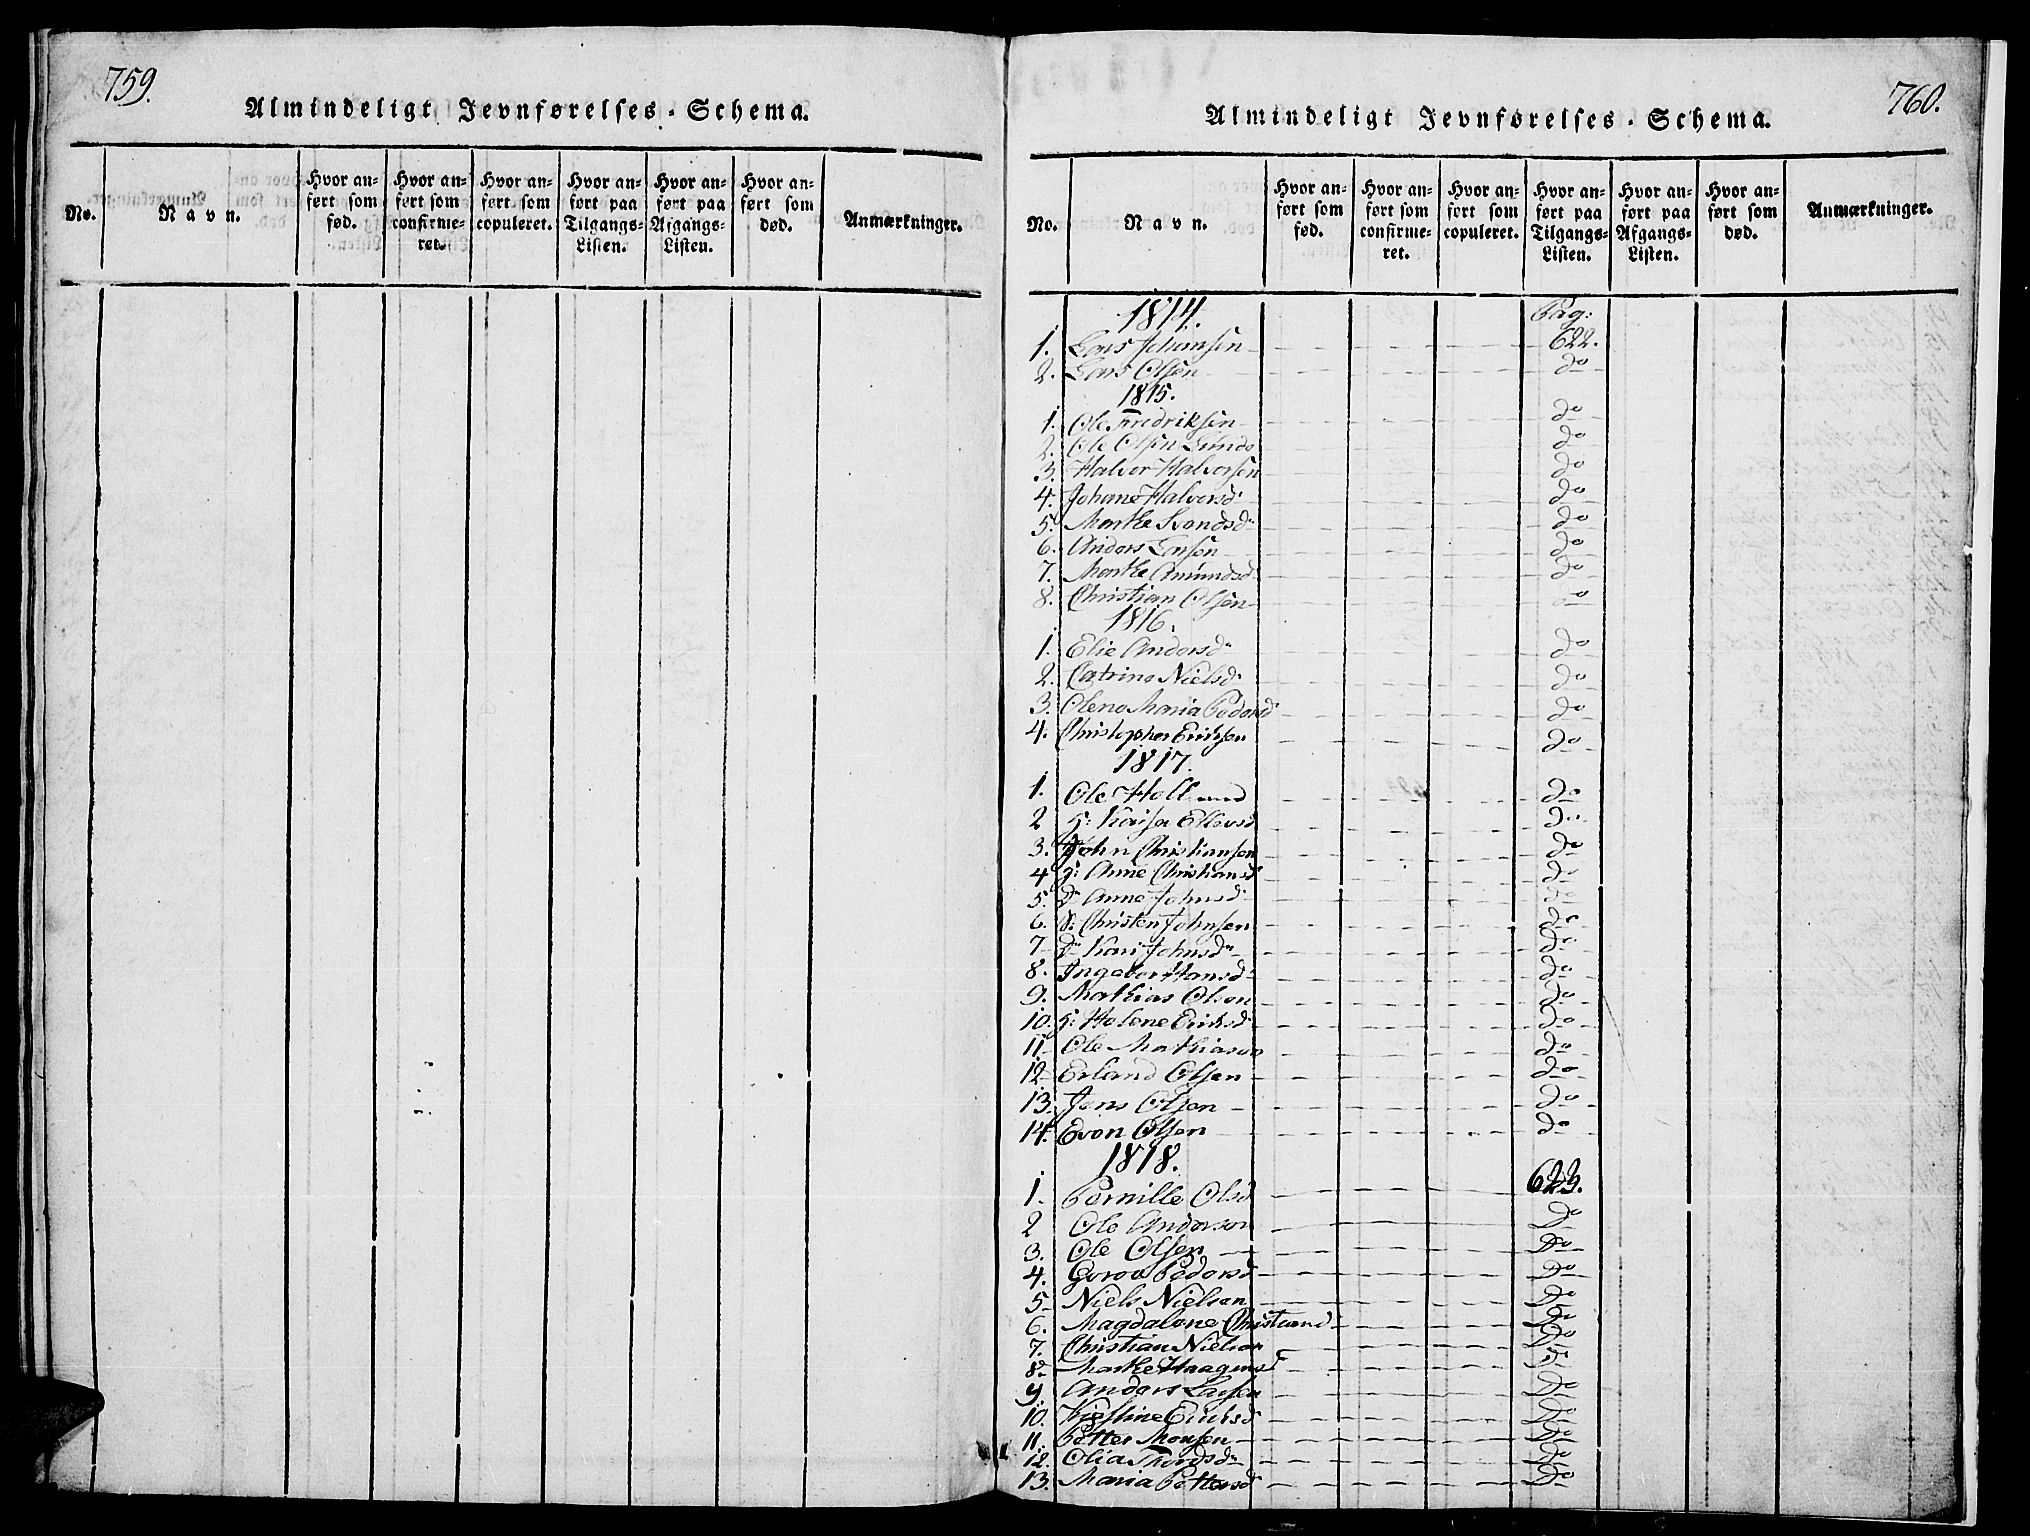 759.
Almindeligt Jevnførelses-Schema.
No.
Navn.
Hvor anført som fød.
Hvor anført som confirmeret.
Hvor anført som copuleret.
Hvor anført paa Tilgangs-Listen.
Hvor anført paa Afgangs-Listen.
Hvor anført som død.
Anmærkninger.
760.
Almindeligt Jevnførelses-Schema.
No.
Navn.
Hvor anført som fød.
Hvor anført som confirmeret.
Hvor anført som copuleret.
Hvor anført paa Tilgangs-Listen.
Hvor anført paa Afgangs-Listen.
Hvor anført som død.
Anmærkninger.
1814. Pag:
1. Lars Johansen 622.
2. Lars Olsen do
1815.
1. Ole Fredriksen do
2. Ole Olsen Lunde do
3. Halvor Halvorsen do
4. Johane Halvorsd. do
5. Marthe Svendsdr do
6. Anders Larsen do
7. Marthe Amundsd do
8. Christian Olsen do
1816.
1. Elie Andersdr do
2. Catrine Nielsd. do
3. Olene Maria Pedersd do
4. Christopher Erichsen do
1817.
1. Ole do
2 K: Kaisa do
3. John Christiansen do
4 Anne Christiansd do
5. Dr Anne Johnsd. do
6. S: Christen Johnsen do
7 Dr Kari Johnsdr do
8. Ingebor Hansdr do
9. Mathias Olsen do
10. K: Helene Erichsd. do
11 Ole Mathiasen do
12 Erland Olsen do
13. Jens Olsen do
14. Even Olsen do
1818.
1. Pernille Olsd 623.
2 Ole Andersen Do
3. Ole Olsen Do
4. Goroe Pedersd Do
5 Niels Nielsen Do
6. Magdalene Do
7. Christian Nielsen Do
8. Marthe Haagensd Do
9. Anders Larsen Do
10. Kjestine Erichsd Do
11. Petter Monsen Do
12. Olia Thordsdr Do
13. Maria Pettersd Do